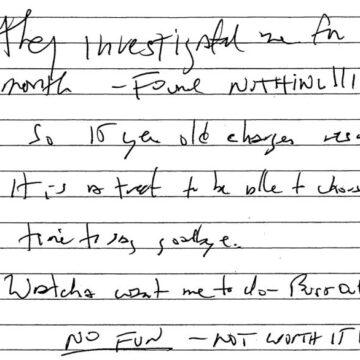 they investigated me for
month – Found NOTHING!!!
So 15 year old charges
It is a treat to be able to choose
time to say goodbye.
Watcha want me to do – Burst out
NO FUN – NOT WORTH IT